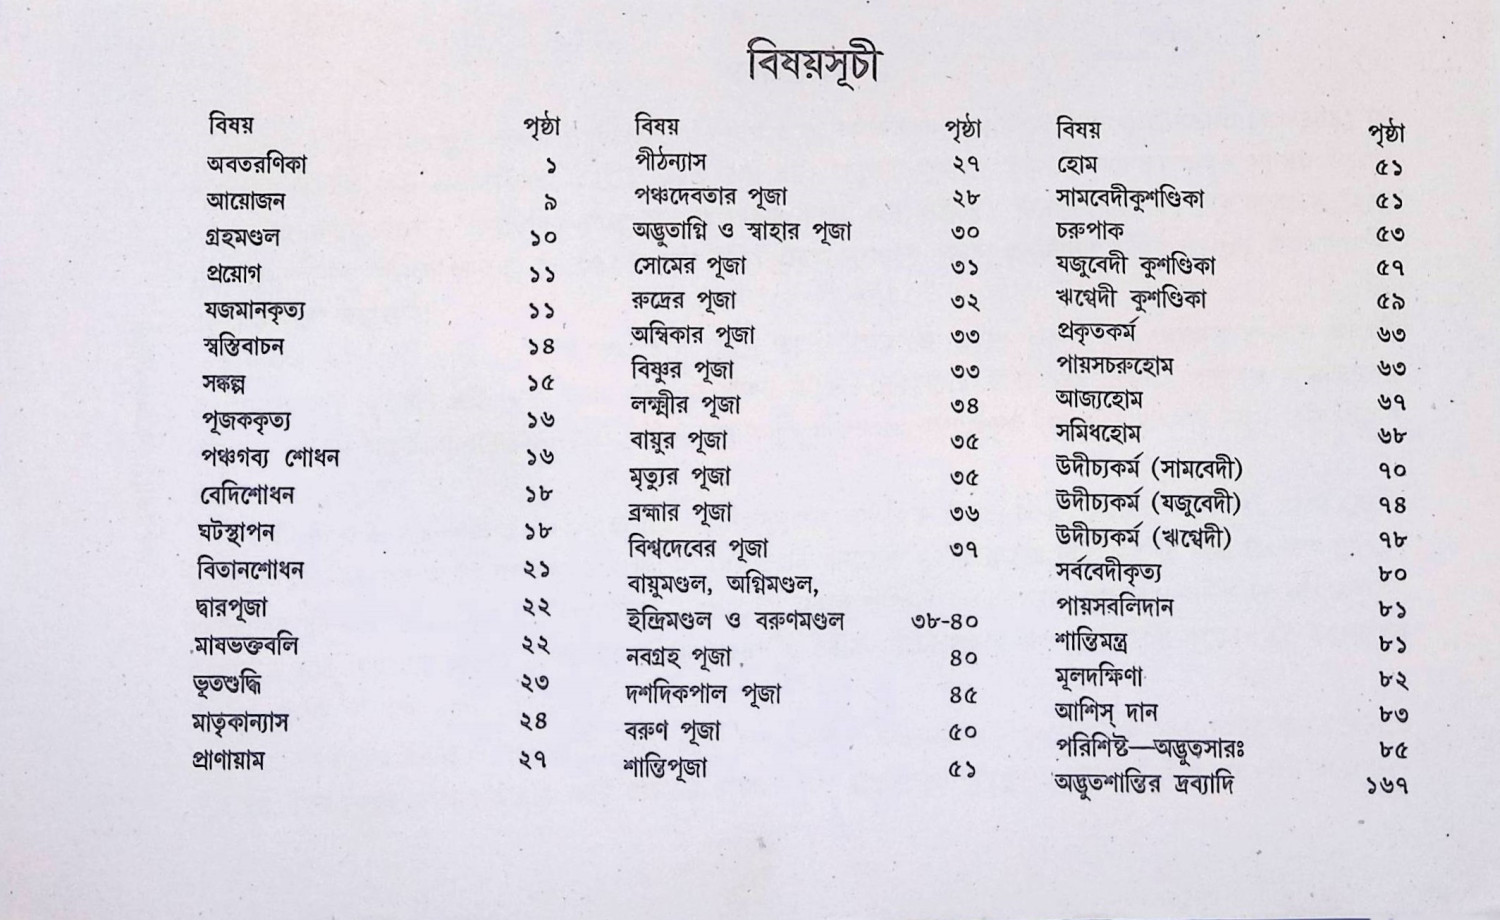 বিষয়সূচী
বিষয় পৃষ্ঠা
অবতরণিকা ১
আয়োজন ৯
গ্রহমণ্ডল ১০
প্রয়োগ ১১
যজমানকৃত্য ১১
স্বস্তিবাচন ১৪
সঙ্কল্প ১৫
পূজককৃত্য ১৬
পঞ্চগব্য শোধন ১৬
বেদিশোধন ১৮
ঘটস্থাপন ১৮
বিতানশোধন ২১
দ্বারপূজা ২২
মাষভক্তবলি ২২
ভূতশুদ্ধি ২৩
মাতৃকান্যাস ২৪
প্রাণায়াম ২৭
বিষয় পৃষ্ঠা
পীঠন্যাস ২৭
পঞ্চদেবতার পূজা ২৮
অদ্ভুতাগ্নি ও স্বাহার পূজা ৩০
সোমের পূজা ৩১
রুদ্রের পূজা ৩২
অম্বিকার পূজা ৩৩
বিষ্ণুর পূজা ৩৩
লক্ষ্মীর পূজা ৩৪
বায়ুর পূজা ৩৫
মৃত্যুর পূজা ৩৫
ব্রহ্মার পূজা ৩৬
বিশ্বদেবের পূজা ৩৭
বায়ুমণ্ডল, অগ্নিমণ্ডল,
ইন্দ্রিমণ্ডল ও বরুণমণ্ডল ৩৮-৪০
নবগ্রহ পূজা ৪০
দশদিকপাল পূজা ৪৫
বরুণ পূজা ৫০
শান্তিপূজা ৫১
বিষয় পৃষ্ঠা
হোম ৫১
সামবেদীকুশণ্ডিকা ৫১
চরুপাক ৫৩
যজুবেদী কুশণ্ডিকা ৫৭
ঋগ্বেদী কুশণ্ডিকা ৫৯
প্রকৃতকর্ম ৬৩
পায়সচরুহোম ৬৩
আজ্যহোম ৬৭
সমিধহোম ৬৮
উদীচ্যকর্ম (সামবেদী) ৭০
উদীচ্যকর্ম (যজুবেদী) ৭৪
উদীচ্যকর্ম (ঋগ্বেদী) ৭৮
সর্ববেদীকৃত্য ৮০
পায়সবলিদান ৮১
শান্তিমন্ত্র ৮১
মূলদক্ষিণা ৮২
আশিস্ দান ৮৩
পরিশিষ্ট—অদ্ভুতসারঃ ৮৫
অদ্ভুতশান্তির দ্রব্যাদি ১৬৭